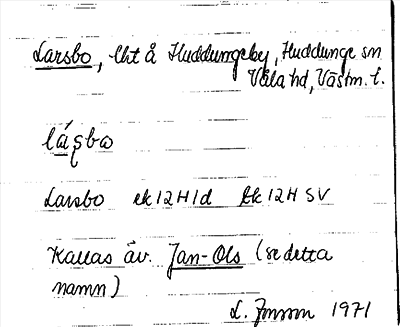 Larsbo, lht å Huddungeby, Huddunge sn
Våla hd, Västm. l.
lásbo
Larsbo ek 12H1d tk 12H SV
Kallas äv. Jan-Ols (se detta
namn)
L. Jonson 1971